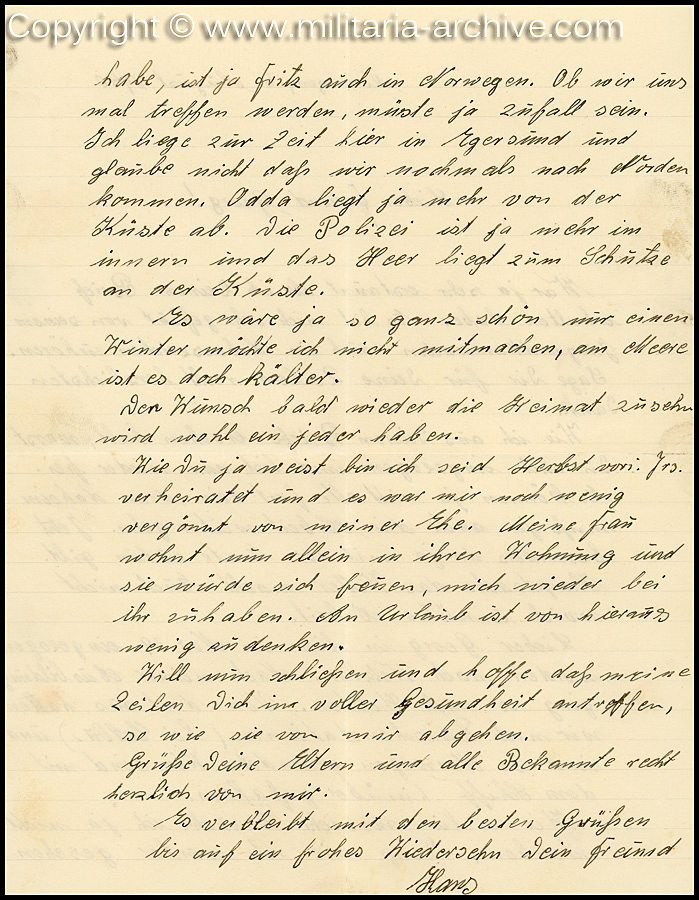 Copyright © www.militaria-archive.com
habe, ist ja Fritz auch in Norwegen. Ob wir uns
mal treffen werden, müste ja zufall sein.
Ich liege zur Zeit hier in Egersund und
glaube nicht daß wir nochmals nach Norden
kommen. Odda liegt ja mehr von der
Küste ab. Die Polizei ist ja mehr im
innern und das Heer liegt zum Schutze
an der Küste.
Es wäre ja so ganz schön nur einen
Winter möchte ich nicht mitmachen, am Meere
ist es doch kälter.
Den Wunsch bald wieder die Heimat zusehn
wird wohl ein jeder haben.
Wie Du ja weist bin ich seid Herbst vori. Jrs.
verheiratet und es war mir noch wenig
vergönnt von meiner Ehe. Meine Frau
wohnt nun allein in ihrer Wohnung und
sie würde sich freuen, mich wieder bei
ihr zuhaben. An Urlaub ist von hieraus
wenig zudenken.
Will nun schließen und hoffe daß meine
Zeilen Dich im voller Gesundheit antreffen,
so wie sie von mir abgehen.
Grüße Deine Eltern und alle Bekannte recht
herzlich von mir.
Es verbleibt mit den besten Grüßen
bis auf ein frohes Wiedersehn Dein Freund
Hans